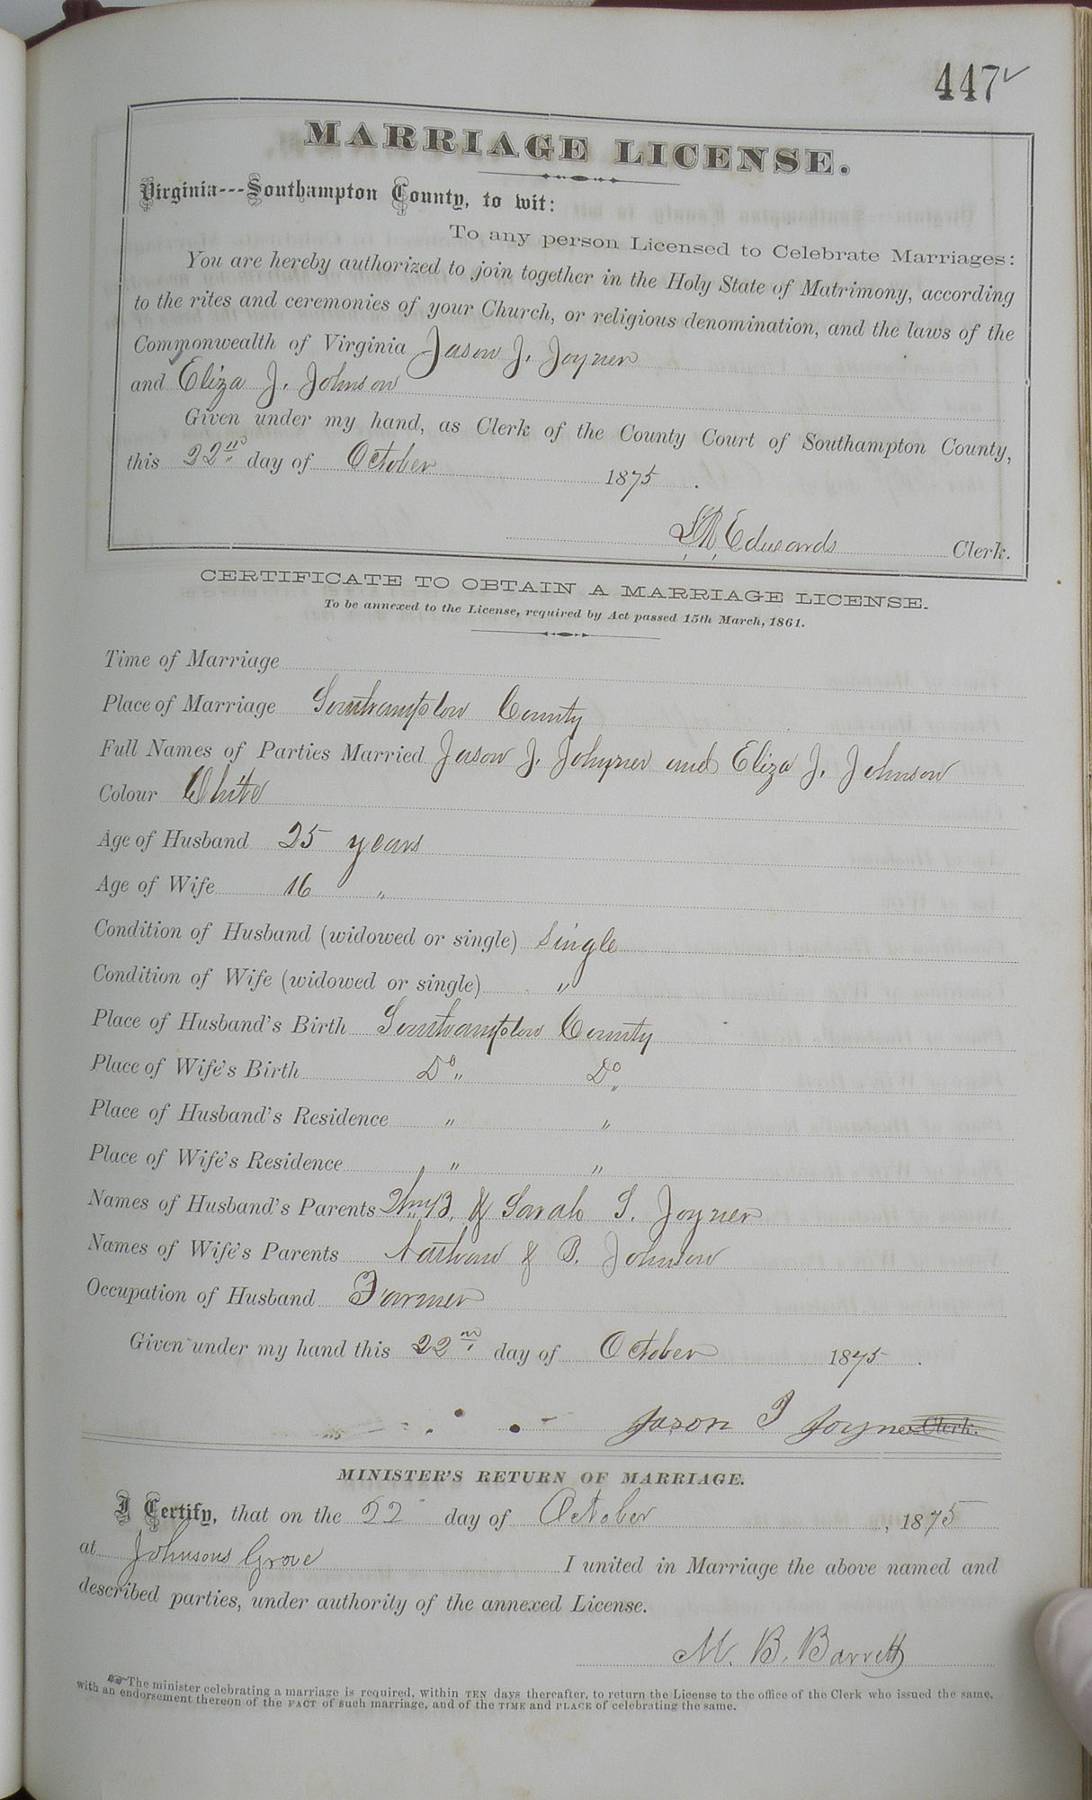 447✓
MARRIAGE LICENSE.
Virginia---Southampton County, to wit:
To any person Licensed to Celebrate Marriages:
You are hereby authorized to join together in the Holy State of Matrimony, according
to the rites and ceremonies of your Church, or religious denomination, and the laws of the
Commonwealth of Virginia Jason J. Joyner
and Eliza J. Johnson
Given under my hand, as Clerk of the County Court of Southampton County,
this 22nd day of October 1875.
L. R. Edwards Clerk.
CERTIFICATE TO OBTAIN A MARRIAGE LICENSE.
To be annexed to the License, required by Act passed 15th March, 1861.
Time of Marriage
Place of Marriage Southampton County
Full Names of Parties Married Jason J. Johyner and Eliza J. Johnson
Colour White
Age of Husband 25 years
Age of Wife 16 "
Condition of Husband (widowed or single) Single
Condition of Wife (widowed or single) "
Place of Husband's Birth Southampton County
Place of Wife's Birth Do " Do "
Place of Husband's Residence " "
Place of Wife's Residence " "
Names of Husband's Parents Wm B. & Sarah S. Joyner
Names of Wife's Parents Nathan & B. Johnson
Occupation of Husband Farmer
Given under my hand this 22nd day of October 1875.
Jason J Joyner Clerk.
MINISTER'S RETURN OF MARRIAGE.
I Certify, that on the 22 day of October, 1875
at Johnsons Grove I united in Marriage the above named and
described parties, under authority of the annexed License.
M. B. Barrett
The minister celebrating a marriage is required, within TEN days thereafter, to return the License to the office of the Clerk who issued the same,
with an endorsement thereon of the FACT of such marriage, and of the TIME and PLACE of celebrating the same.